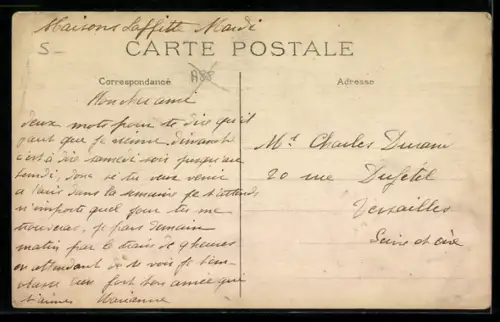 Maisons Laffitte Mardi
5-
CARTE POSTALE
Correspondance
Adresse
Mon cher ami
deux mots pour te dire qu'il
faut que je vienne dimanche
c'est à dire samedi soir jusqu'au
lundi, donc si tu veux venir
a Paris dans la semaine je t'attends
n'importe quel jour tu me
trouveras, je pars demain
matin par le train de 9 heures
en attendant de te voir je t'em
fort ton amie qui
t'aimes Marianne
Mr Charles Durand
20 rue
Versailles
Seine et oise